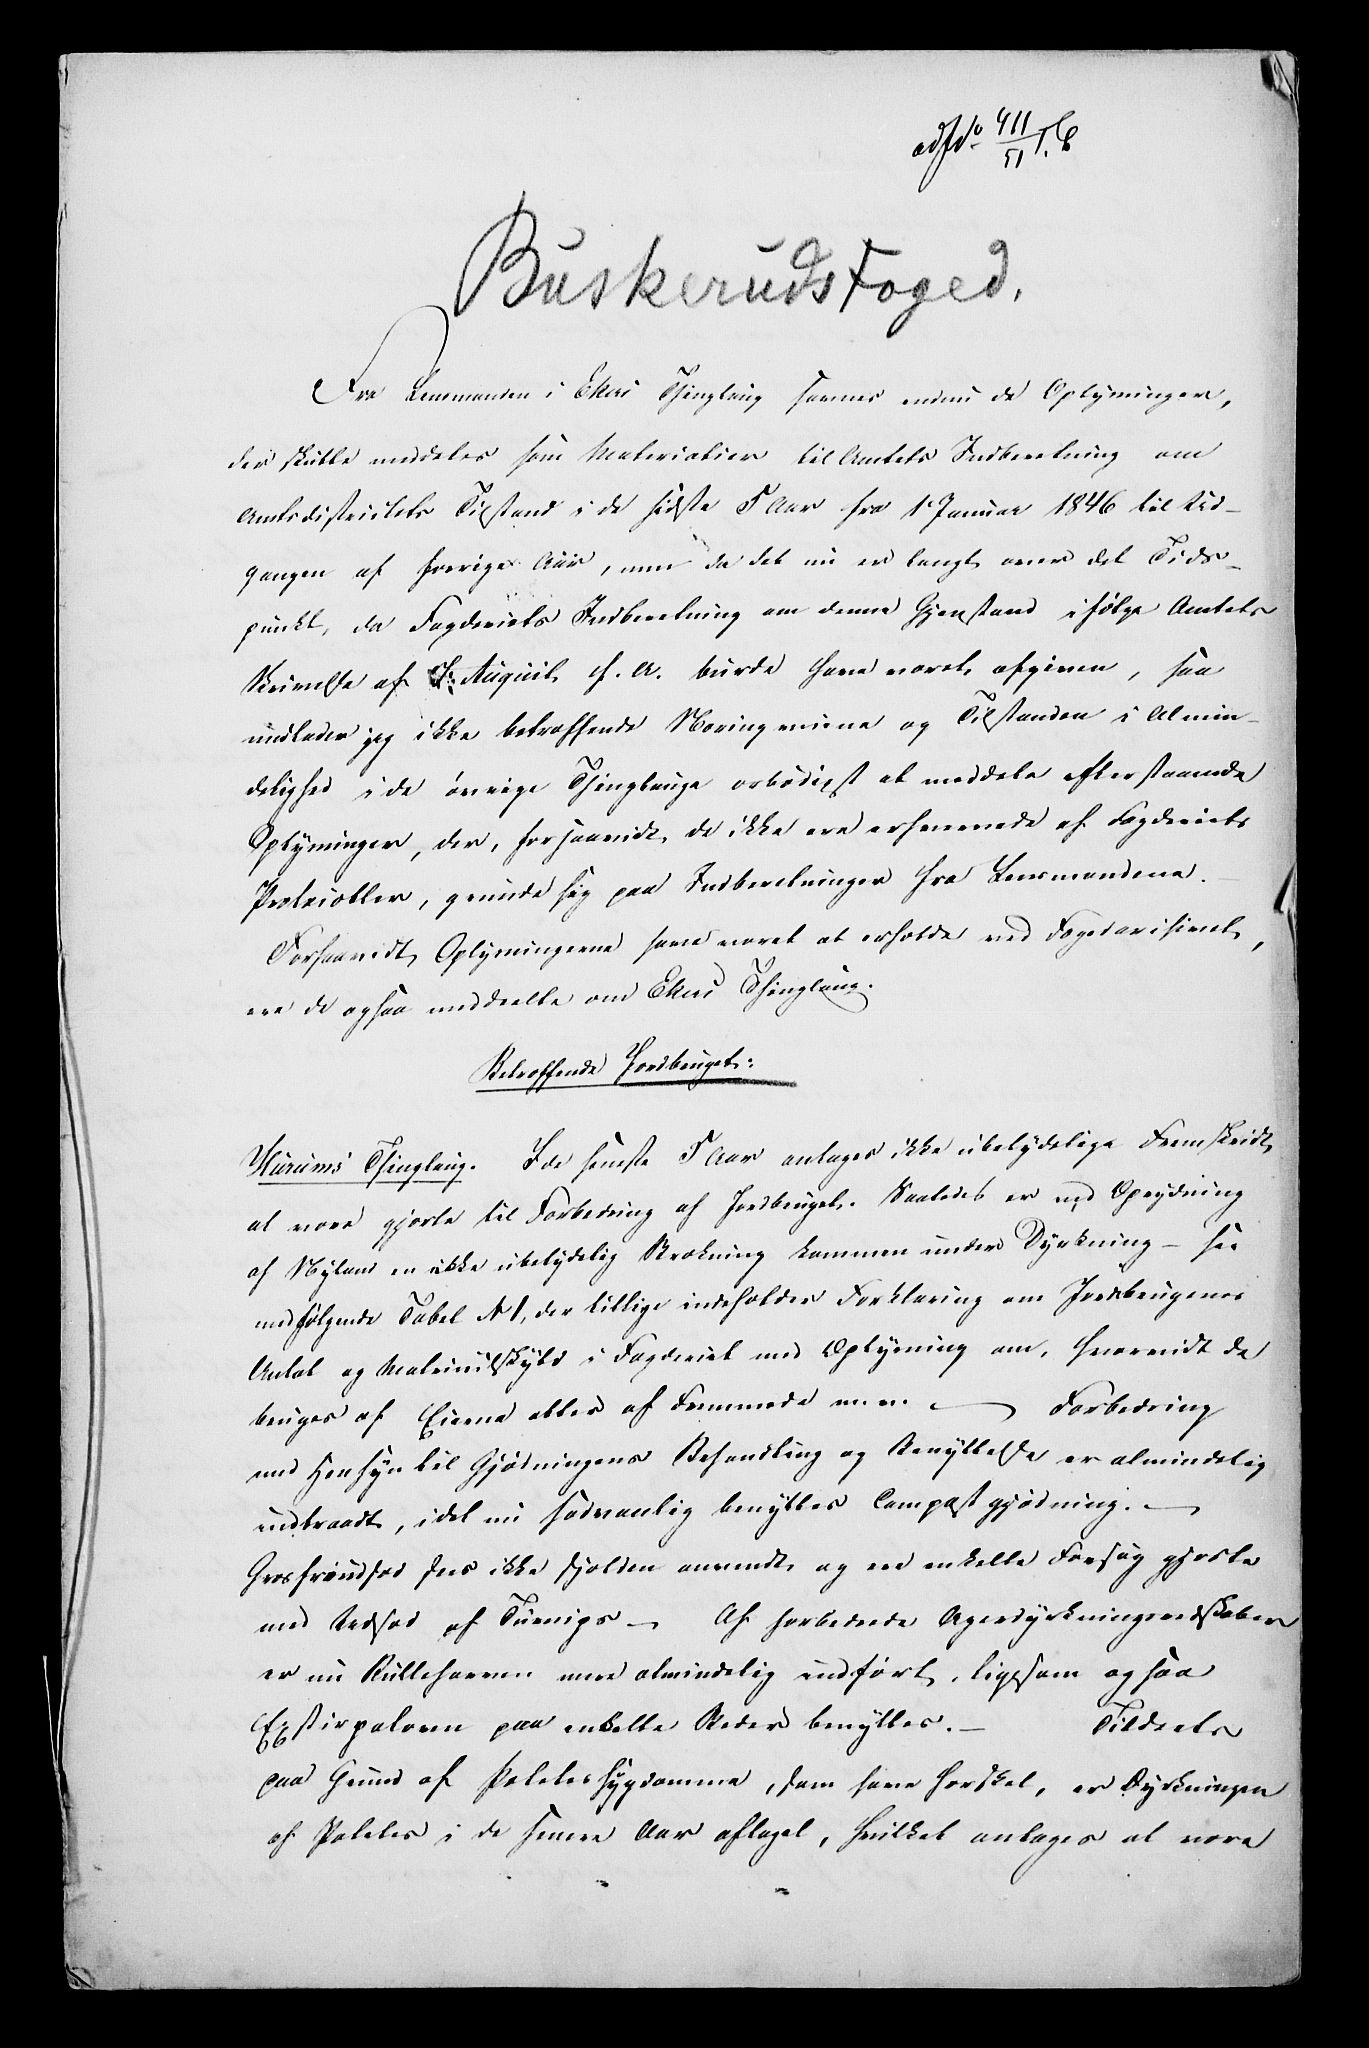 ad No 411/51 J. C
Buskeruds Foged.
Fra Lensmanden i Ekers Thinglaug savnes endnu de Oplysninger,
der skulle meddeles som Materialier til Amtets Indberetning om
Amtsdistrictets Tilstand i de sidste 5 Aar fra 1 Januar 1846 til Ud-
gangen af forrige Aar, men da det nu er langt over det Tids-
punkt, da Fogderiets Indberetning om denne Gjenstand ifølge Amtets
Skrivelse af August f. A. burde have været afgiven, saa
undlader jeg ikke betræffende Næringveiene og Tilstanden i Almin-
delighed i de øvrige Thinglauge ærbødigst at meddele efterstaaende
Oplysninger, der, forsaavidt de ikke ere erhvervede af Fogderiets
Protocoller, grunde sig paa Indberetninger fra Lensmændene.
Forsaavidt Oplysningerne have været at erholde ved Fogedarkivet,
ere de ogsaa meddeelte om Ekers Thinglaug.
Betræffende Jordbruget:
Hurums Thinglaug. I de seneste 5 Aar antages ikke ubetydelige Fremskridt
at være gjorte til Forbedring af Jordbruget. Saaledes er ved Oprydning
af Nyland en ikke ubetydelig Strækning kommen under Dyrkning - see
medfølgende Tabel No 1, der tillige indeholder Forklaring om Jordbrugenes
Antal og Matriculskyld i Fogderiet med Oplysning om, hvorvidt de
bruges af Eierne eller af Fremmede m. v. — Forbedring
med Hensyn til Gjødningens Behandling og Benyttelse er almindelig
indtraadt, idet nu sædvanlig benyttes Compostgjødning. —
Græsfrøudsæd sees ikke sjelden anvendt og ere enkelte Forsøg gjorte
med Udsæd af Turnips — Af forbedrede Agerdyrkningsredskaber
er nu Rulleharven mere almindelig indført, ligesom ogsaa
Exstirpatoren paa enkelte Steder benyttes. — Tildeels
paa Grund af Potetessygdomme, som have hersket, er Dyrkningen
af Potetes i de senere Aar aftaget, hvilket antages at være